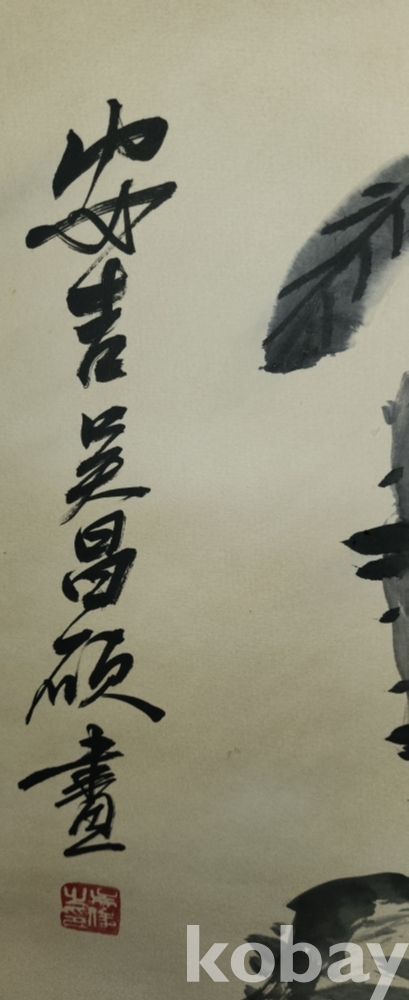 安吉吳昌碩畫
kobay